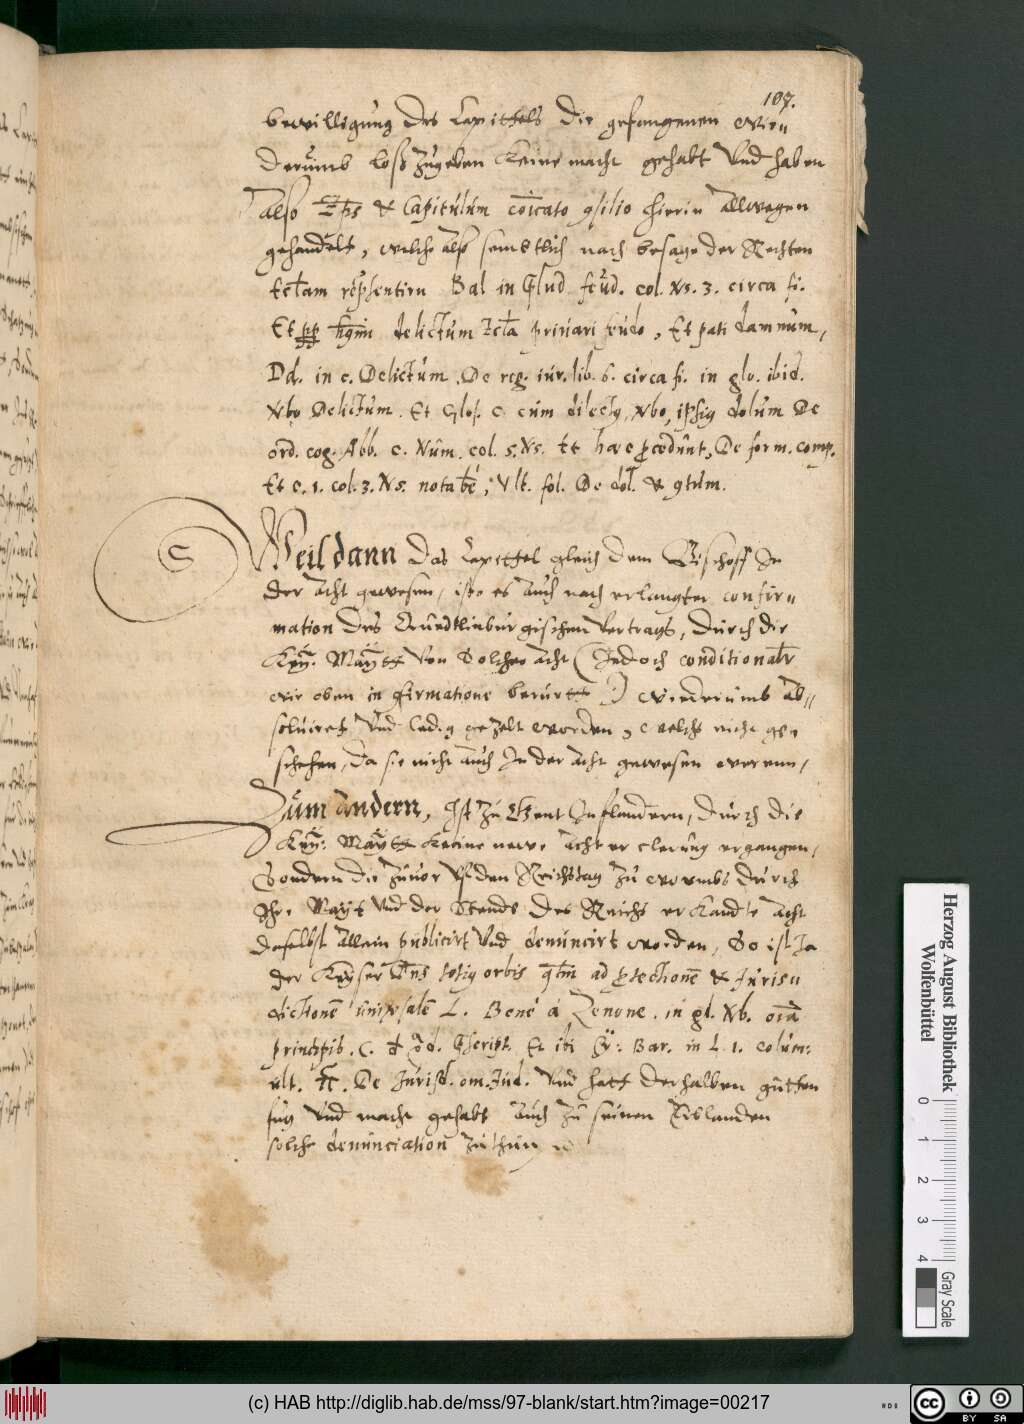 107.
bewilligung des Capittels die gefangenen wie„
derumb loß zugeben keine macht gehabt vnd haben
also Eps & Capitulum coicato gsilio hierin allwegen
gehandelt, welche also semblich nach besage der Rechten
Bal in feud. col. Ns. 3. circa fi.
Et delictum priuari feudo, Et pati damnum,
Dd. in c. Delictum. De reg. iur. lib. 6. circa fi. in glo. ibid.
Nbo Delictum. Et Glos. c. cum dilecty, Nbo, ipsiy dolum De
ord. cog. Abb. c. Num. col. 5. Ns. et haec pcedunt, De form. comp.
Et c. 1. col. 3. Ns. notabe, Vlt. fol. De dol. & gtum.
S
Weil dann das Capittel gleich dem Bischoff In
der Acht gewesen, ists es auch nach erlangter confir„
mation des Quedtlinburgischen Vertrags, durch die
Kay: Maytt von solcher Acht (Jedoch conditionalr
wie oben in firmatione berurtt) wiederumb ab„
soluiret vnd ledig gezelt worden, welchs nicht ge„
schehen, da sie nicht auch In der Acht gewesen weren,
Zum Andern, Ist zu Ghent In flandern, durch die
Kay: Maytt keine newe Acht erclerung ergangen,
Sondern die zuuor vf den Reichstag zu wormbs durch
Ihr. Mayt vnd der Stende des Reichs erkandte Acht
daselbst allein publicirt vnd denuncirt worden, So ist Ja
der Keyser Dns totiy orbis qtm ad ptectione & Jurisu
dictione uniuersale L. Bene a Zenone. in gl. Nb. oia
principis. C. d Et ibi Bar. in L. 1. colum:
ult. De Jurisd. om. Jud. vnd hatt derhalben gutten
fug vnd macht gehabt auch zu seinen Erblanden
solche denunciation zuthun
Herzog August Bibliothek
Wolfenbüttel
0 1 2 3 4
Gray Scale
(c) HAB http://diglib.hab.de/mss/97-blank/start.htm?image=00217
cc BY SA